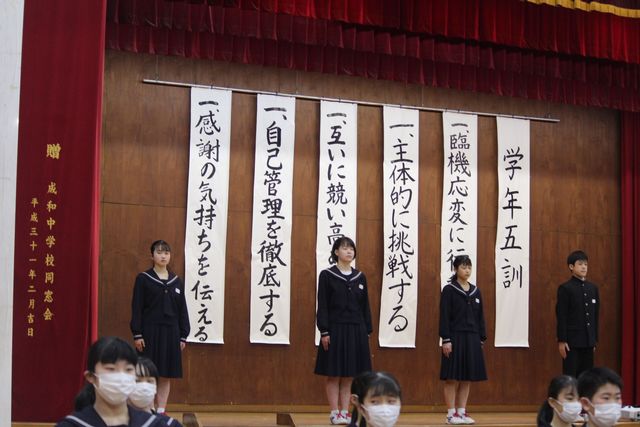 学年五訓
一、臨機応変に行
一、主体的に挑戦する
一、互いに競い高
一、自己管理を徹底する
一、感謝の気持ちを伝える
贈 成和中学校同窓会
平成三十一年二月吉日